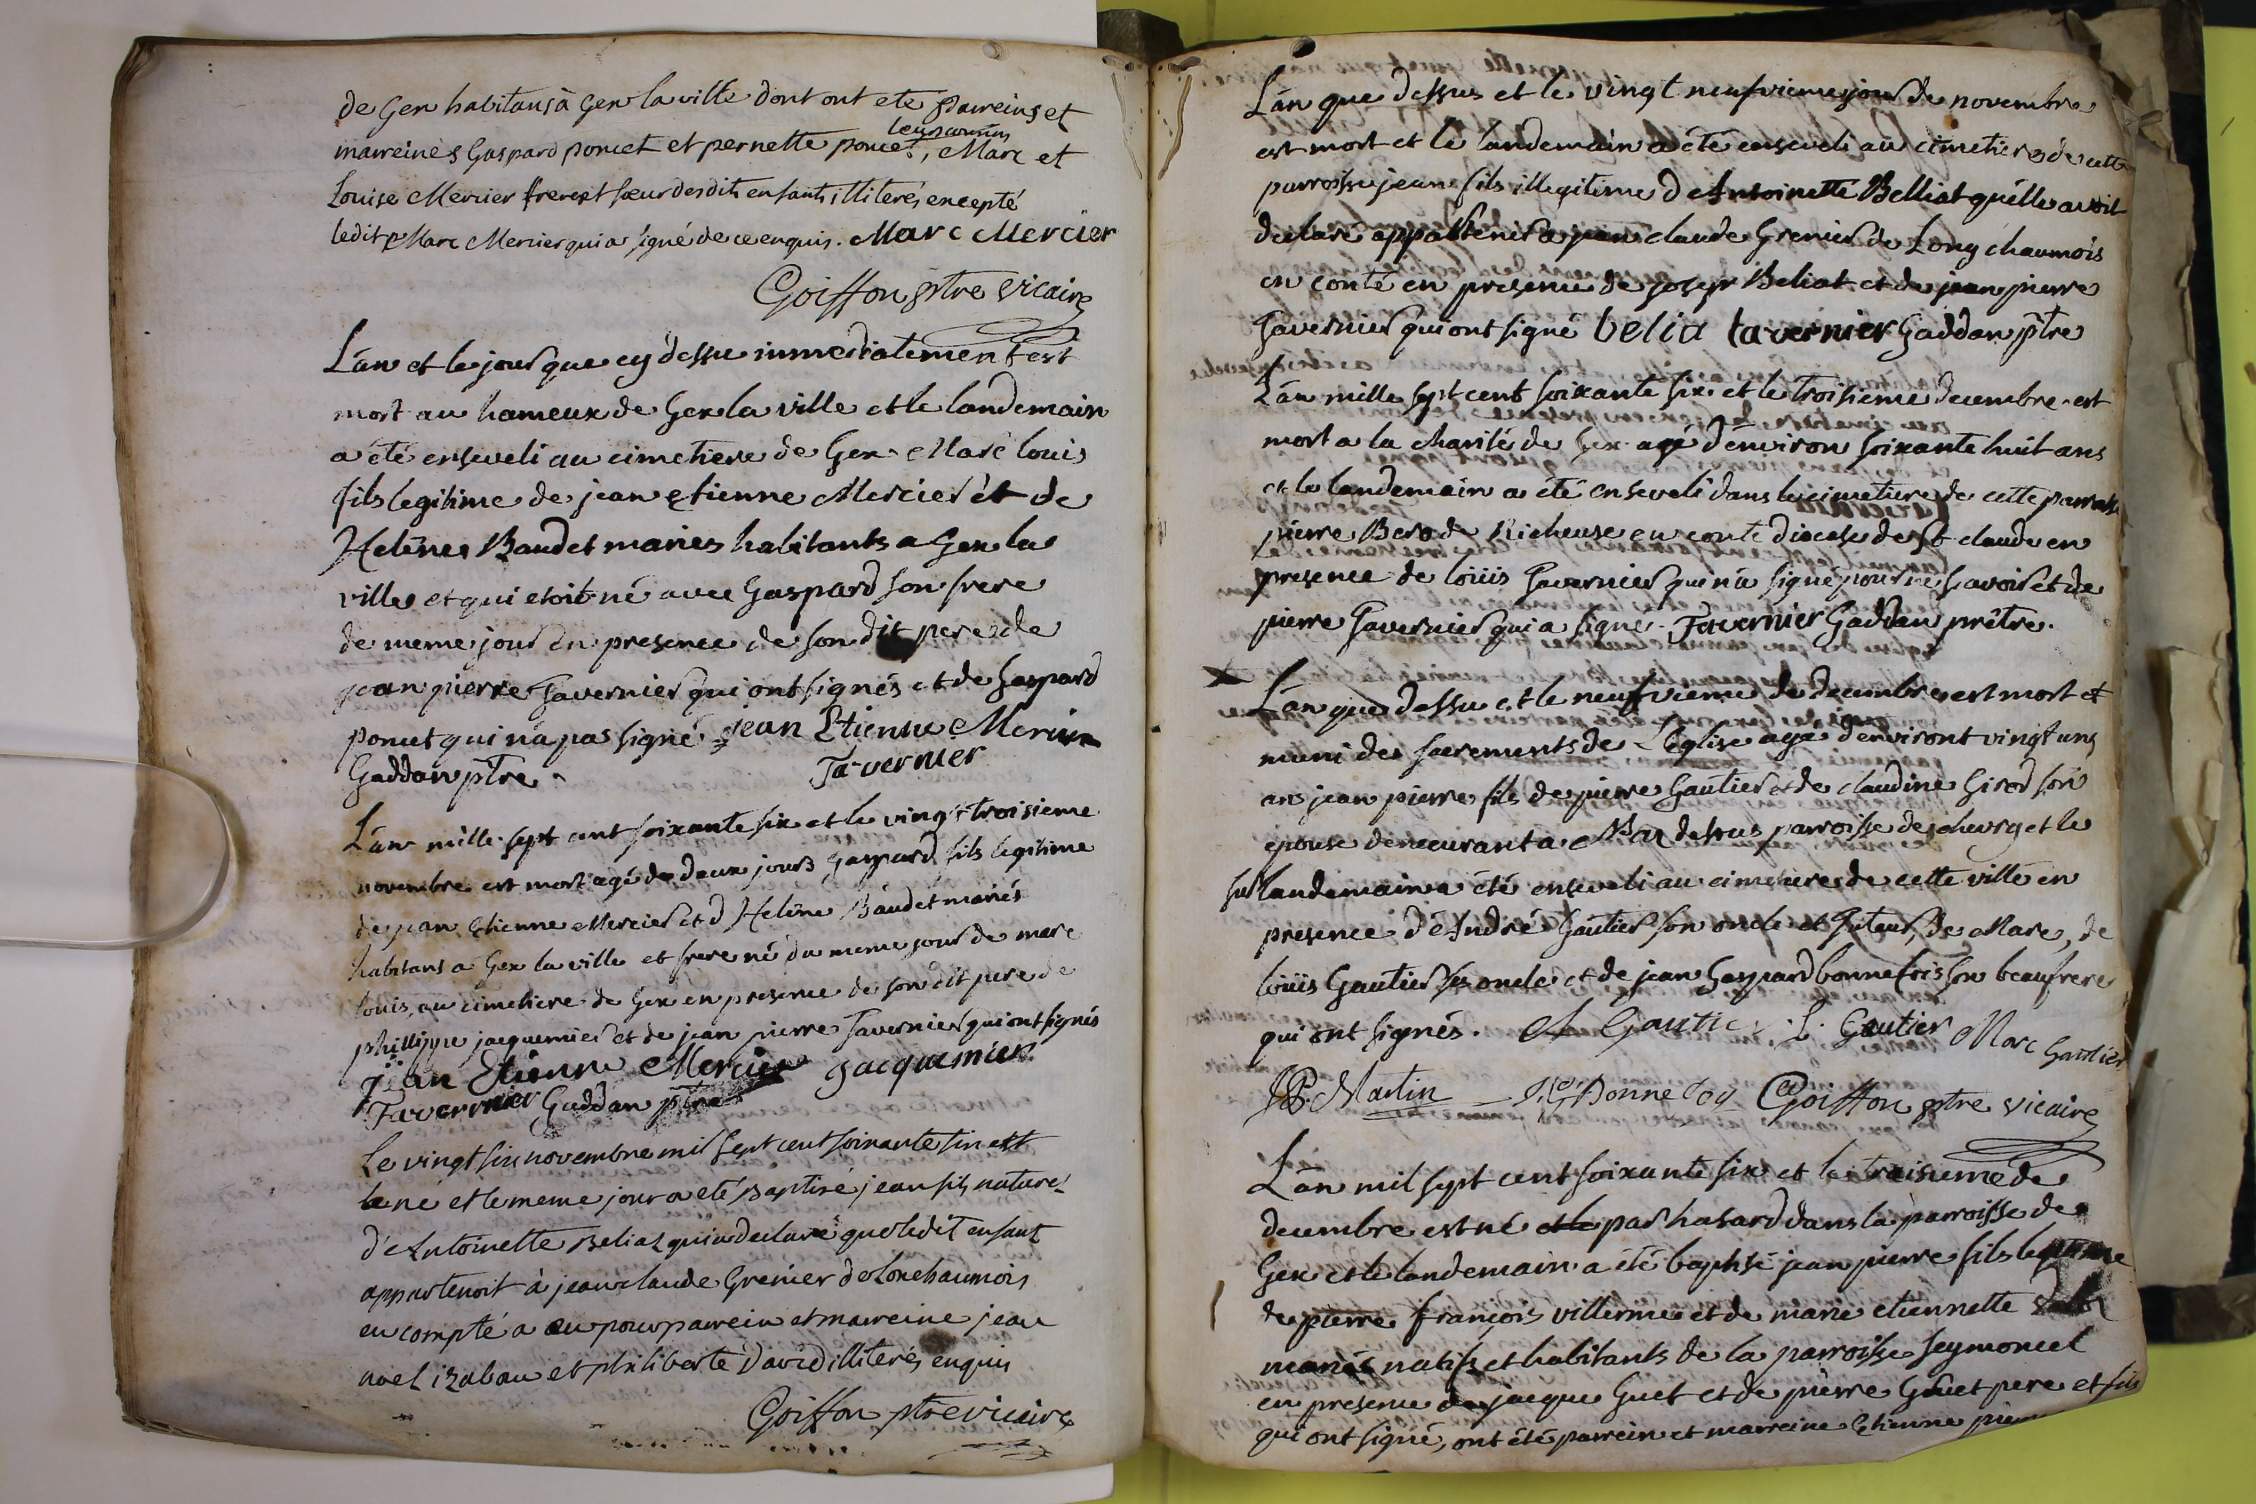 de Gex habitans à Gex la ville dont ont eté parreins et
marreines Gaspard poncet et pernette poncet, Marc et
Louise Mercier frere et sœur desdits enfants illiterés excepté
ledit Marc Mercier qui a signé de ce enquis. Marc Mercier
Goiffon ptre vicaire
L'an et le jour que cy dessu immediatement est
mort au hameux de Gex la ville et le landemain
a été enseveli au cimetiere de Gex Marc louis
fils legitime de jean etienne Mercier et de
Helêne Baudet mariés habitants a Gex la
ville et qui etoit né avec Gaspard son frere
de meme jour en presence de son dit pere de
jean pierre Tavernier qui ont signés et de Gaspard
poncet qui n'a pas signé jean Etienne Mercier
Gaddan ptre Tavernier
L'an mille sept cent soixante six et le vingt troisieme
novembre est mort agé de deux jours Gaspard fils legitime
de jean Etienne Mercier et d'Helêne Baudet mariés
habitans a Gex la ville et frere né du meme jour de marc
louis, au cimetiere de Gex en presence de son dit pere de
phillippe jacquemier et de jean pierre Tavernier qui ont signés
jean Etienne Mercier jacquemier
Tavernier Gaddan ptre
Le vingt six novembre mil sept cent soixante six est
né et le meme jour a eté Baptisé jean fils naturel
d'Antoinette Beliat qui a declaré que ledit enfant
appartenoit à jean claude Grenier de Lonchaumois
en compté a eu pour parrein et marreine jean
noel izabau et philiberte David illiterés enquis
Goiffon ptre vicaire
L'an que dessus et le vingt neufvieme jour de novembre
est mort et le landemain a été enseveli au cimetiere de cette
parroisse jean fils illegitime d'Antoinette Belliat qu'elle avoit
declaré appartenir a jean claude Grenier de Long chaumois
en conté en presence de joseph Beliat et de jean pierre
Tavernier qui ont signé belia tavernier Gaddan ptre
L'an mille sept cent soixante six et le troisieme decembre est
mort a la charité de Gex agé d'environ soixante huit ans
et le landemain a été enseveli dans le cimetiere de cette parroisse
pierre Bero de Richeuse en conté diocese de St claude en
presence de loüis Tavernier qui n'a signé pour ne savoir et de
pierre Tavernier qui a signé. Tavernier Gaddan prêtre.
L'an que dessu et le neufvieme de decembre est mort et
muni des sacrements de L'eglise agé d'environt vingt uns
an jean pierre fils de pierre Gautier et de claudine Girod son
epouse demeurant a dessus parroisse de chevry et le
sur landemain a été enseveli au cimetiere de cette ville en
presence d'André Gautier son oncle et Tuteur, de Marc, de
loüis Gautier ses oncles et de jean Gaspard bonnefois son beaufrere
qui ont signés. A Gautie L. Gautier Marc Gautier
Martin J G Bonnefoy Goiffon ptre vicaire
L'an mil sept cent soixante six et le troisieme de
decembre est né par hasard dans la parroisse de
Gex et le landemain a été baptisé jean pierre fils legitime
de pierre françois villerme et de marie etiennette
mariés natifs et habitants de la parroisse Seymoncel
en presence de jacque Guet et de pierre Guet pere et fils
qui ont signé, ont été parrein et marreine Etienne